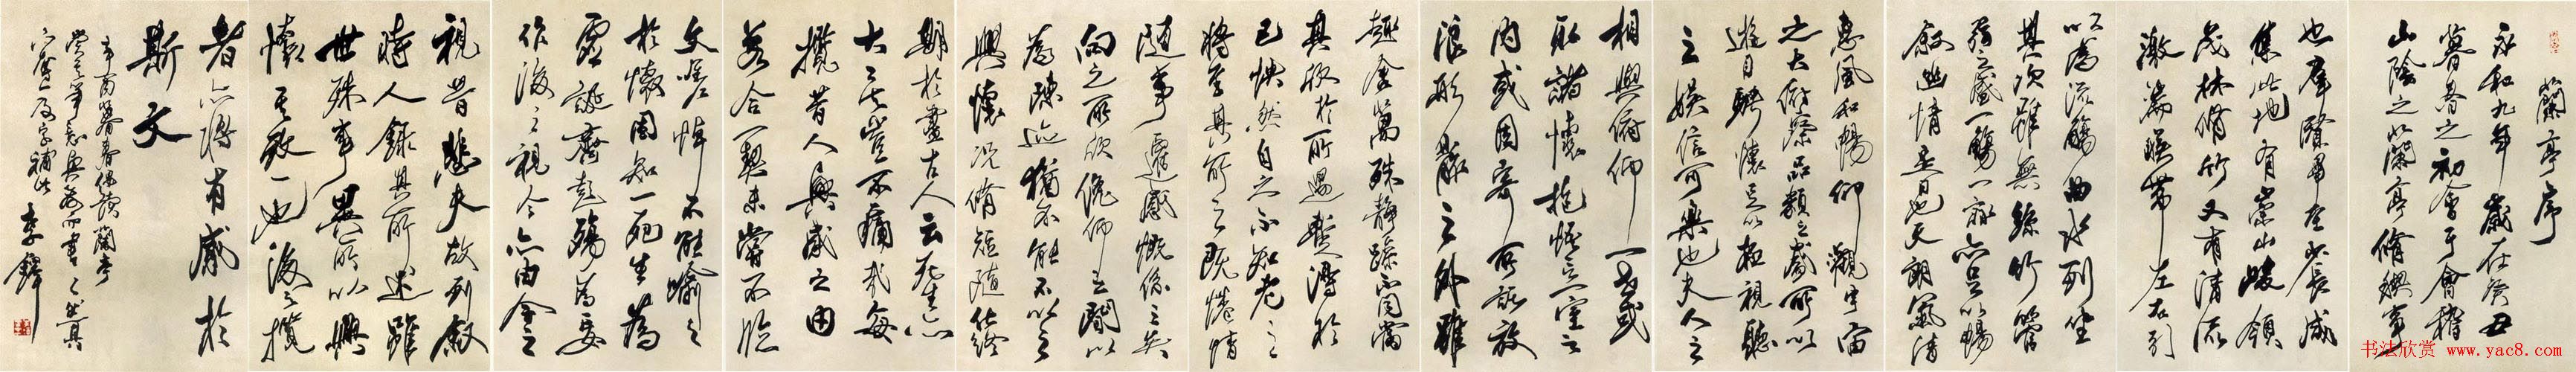 蘭亭序
永和九年歲在癸丑
暮春之初會于會稽
山陰之蘭亭脩禊事
也羣賢畢至少長咸
集此地有崇山峻領
茂林脩竹又有清流
激湍暎帶左右引
以為流觴曲水列坐
其次雖無絲竹管
弦之盛一觴一詠亦足以暢
敘幽情是日也天朗氣清
惠風和暢仰觀宇宙
之大俯察品類之盛所以
遊目騁懷足以極視聽
之娛信可樂也夫人之
相與俯仰一世或
取諸懷抱悟言一室之
內或因寄所託放
浪形骸之外雖
趣舍萬殊靜躁不同當
其欣於所遇暫得於
己怏然自足不知老之
將至及其所之既惓情
隨事遷感慨係之矣
向之所欣俛仰之閒以
為陳迹猶不能不以之
興懷況脩短隨化終
期於盡古人云死生亦
大矣豈不痛哉每
攬昔人興感之由
若合一契未嘗不臨
文嗟悼不能喻之
於懷固知一死生為
虛誕齊彭殤為妄
作後之視今亦由今之
視昔悲夫故列敘
時人錄其所述雖
世殊事異所以興
懷其致一也後之攬
者亦將有感於
斯文
辛酉暮春偶讀蘭亭
李鐸
书法欣赏 www.yac8.com